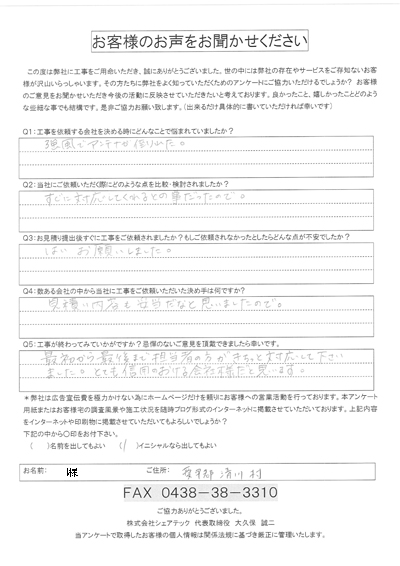 お客様のお声をお聞かせください
この度は弊社に工事をご用命いただき、誠にありがとうございました。世の中には弊社の存在やサービスをご存知ないお客
様が沢山いらっしゃいます。その方たちに弊社をよく知っていただくためのアンケートにご協力いただけるでしょうか？ お客様
のご意見をお聞かせいただき今後の活動に反映させていただきたいと考えております。良かったこと、嬉しかったことどのよう
な些細な事でも結構です。是非ご協力お願い致します。（出来るだけ具体的に書いていただければ幸いです）
Q1：工事を依頼する会社を決める時にどんなことで悩まれていましたか？
強風でアンテナが倒れた。
Q2：当社にご依頼いただく際にどのような点を比較・検討されましたか？
すぐに対応してくれるとの事だったので。
Q3：お見積り提出後すぐに工事をご依頼されましたか？もしご依頼されなかったとしたらどんな点が不安でしたか？
はい お願いしました。
Q4：数ある会社の中から当社に工事をご依頼いただいた決め手は何ですか？
見積り内容も妥当だなと思いましたので。
Q5：工事が終わってみていかがですか？忌憚のないご意見を頂戴できましたら幸いです。
最初から最後まで担当者の方がきちっと対応して下さい
ました。とても信用のおける会社様だと思います。
＊弊社は広告宣伝費を極力かけない為にホームページだけを頼りにお客様への営業活動を行っております。本アンケート
用紙またはお客様宅の調査風景や施工状況を随時ブログ形式のインターネットに掲載させていただいております。上記内容
をインターネットや印刷物に掲載させていただいてもよろしいでしょうか？
下記の中から〇印をお付下さい。
（ ）名前を出してもよい （/）イニシャルなら出してもよい
お名前： 様 ご住所： 愛甲郡 清川村
FAX 0438-38-3310
ご協力ありがとうございました。
株式会社シェアテック 代表取締役 大久保 誠二
当アンケートで取得したお客様の個人情報は関係法規に基づき厳正に管理いたします。